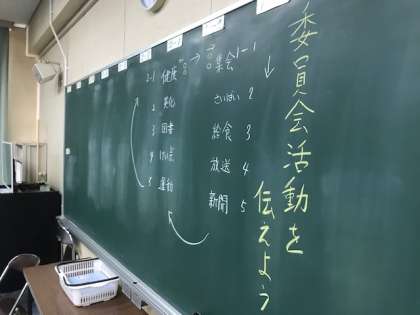 委員会活動を
伝えよう
集会 1-1
さいばい 2
給食 3
放送 4
新聞 5
2-1 健康
2 美化
3 図書
4
5 運動